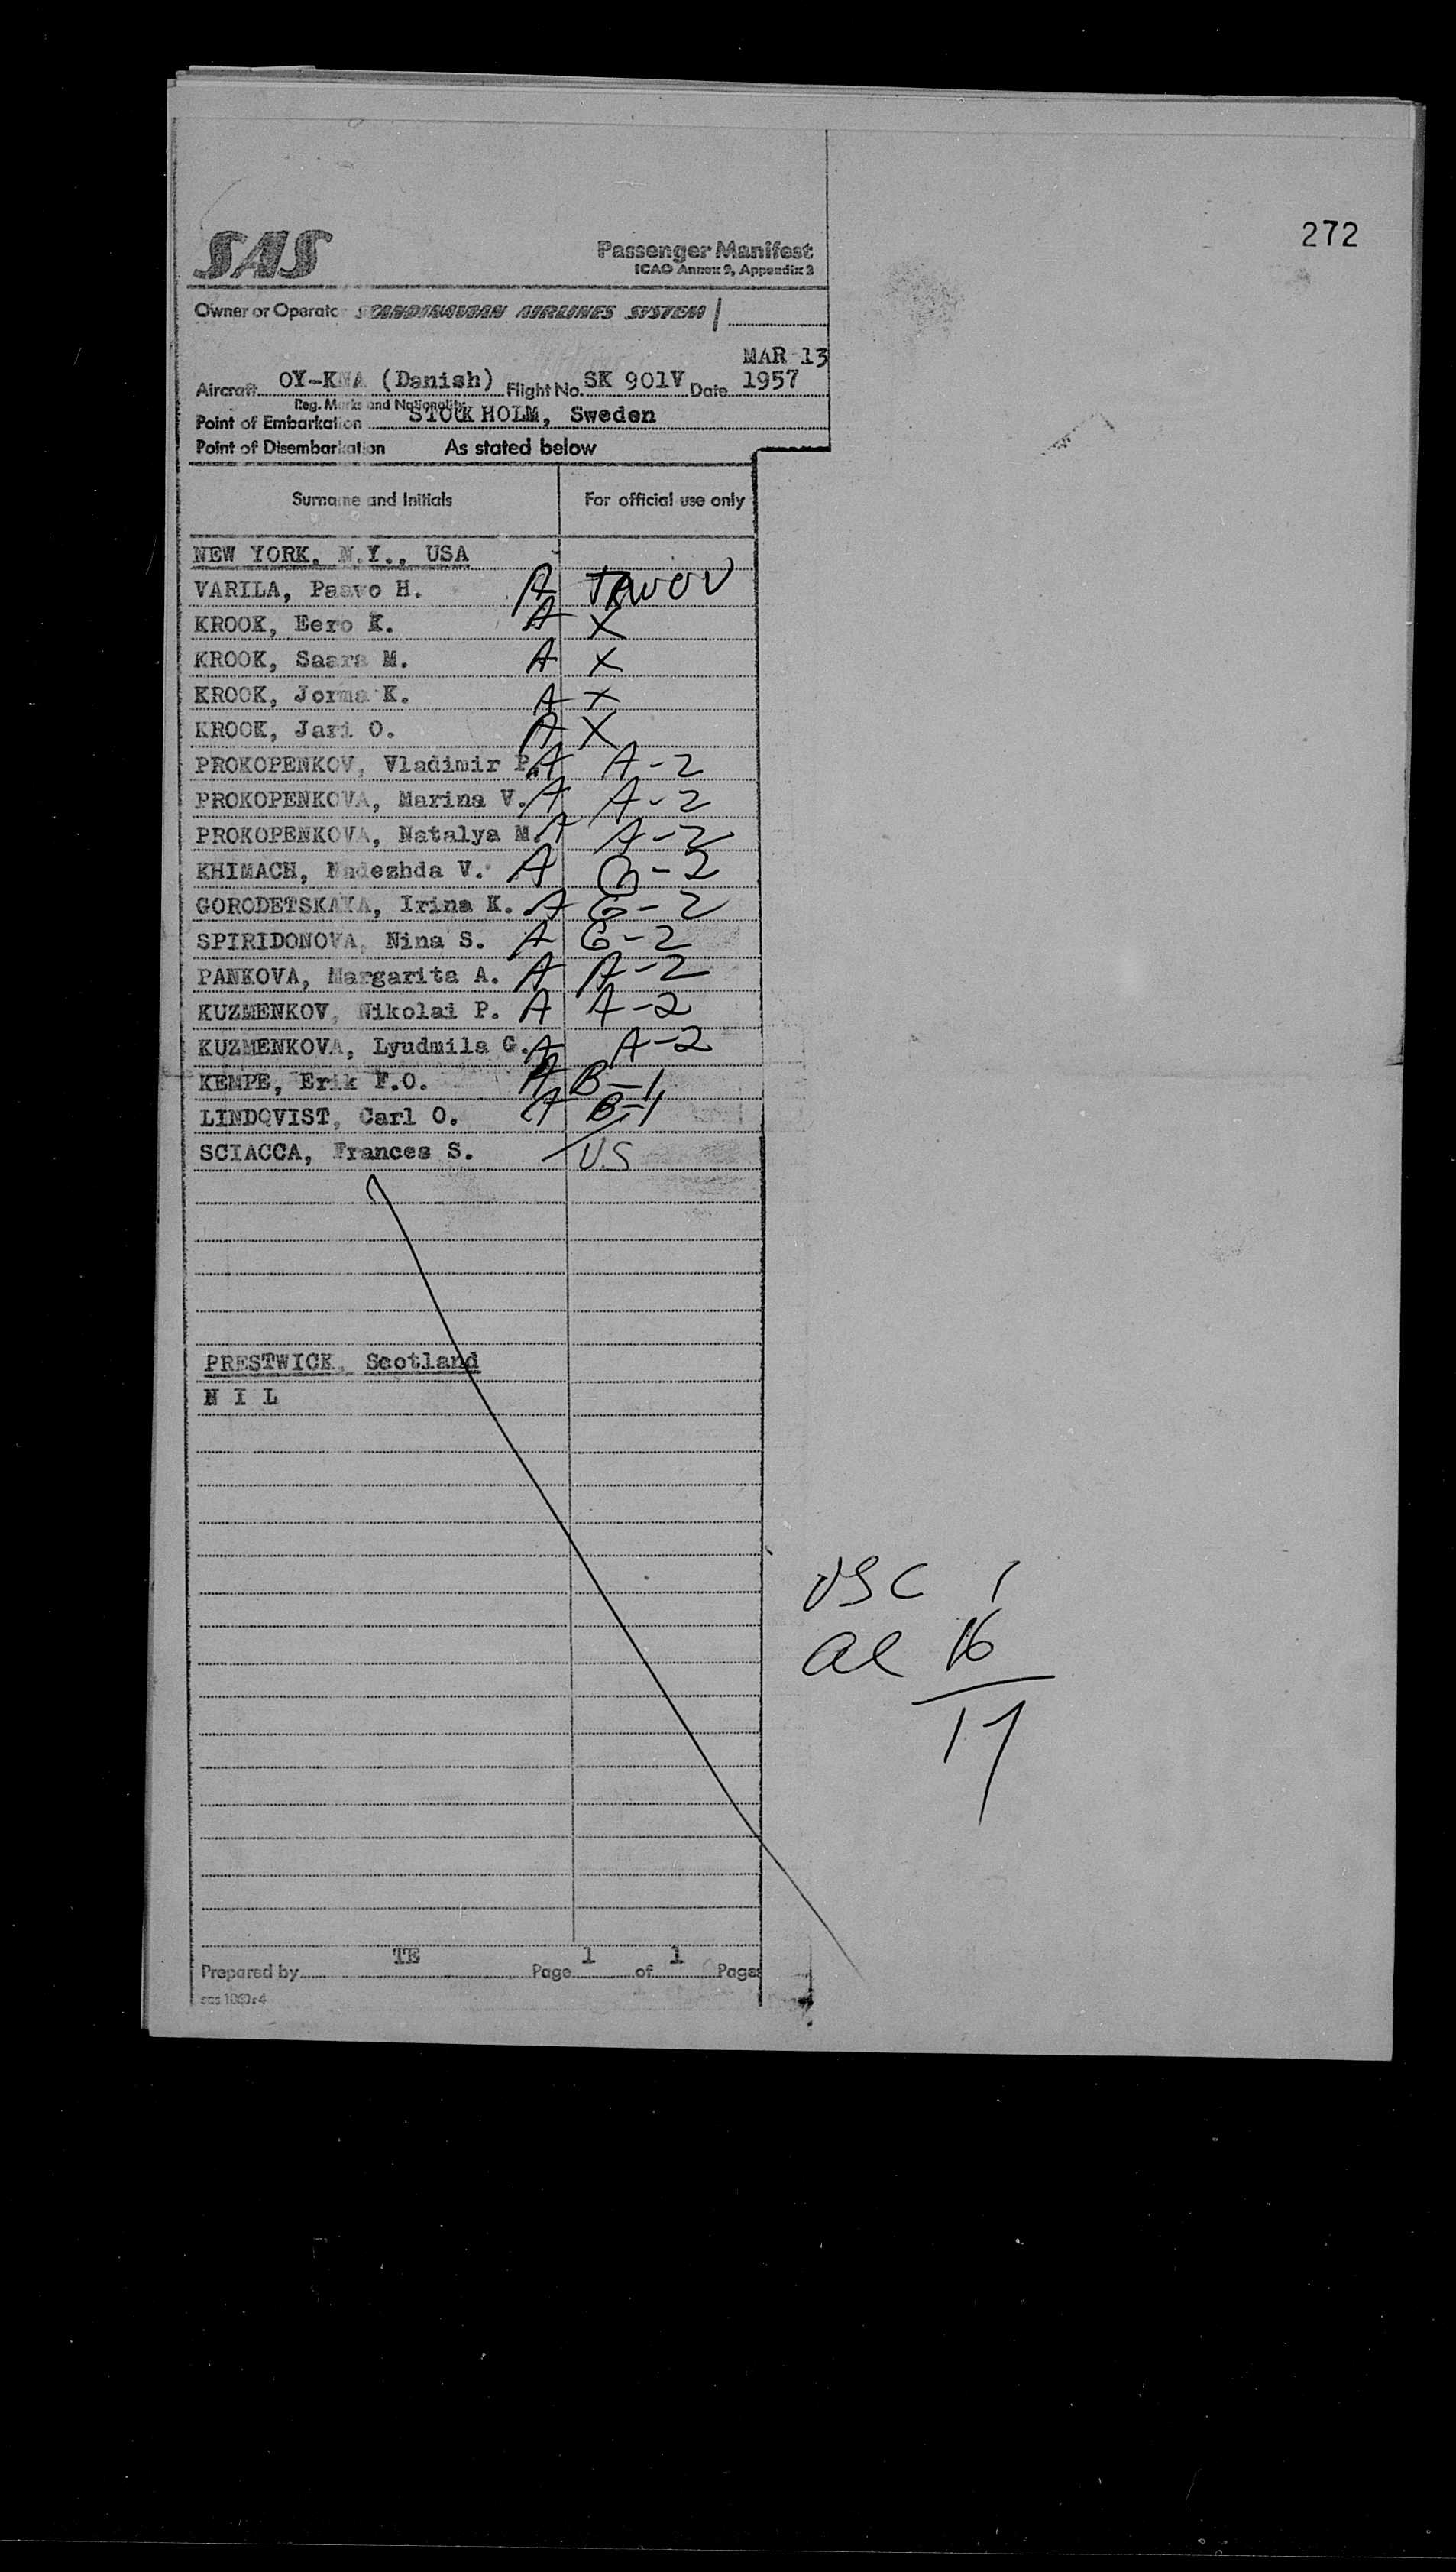 272
SAS
Passenger Manifest
ICAO Annex 9, Appendix 2
Owner or Operator SCANDINAVIAN AIRLINES SYSTEM
MAR 13
Aircraft OY-KNA (Danish) Flight No. SK 901V Date 1957
Reg. Marks and Nationality
Point of Embarkation STOCKHOLM, Sweden
Point of Disembarkation As stated below
Surname and Initials For official use only
NEW YORK, N.Y., USA
VARILA, Paavo H. A
KROOK, Eero K. A X
KROOK, Saara M. A X
KROOK, Jorma K. A X
KROOK, Jari O. A X
PROKOPENKOV, Vladimir P. A A-2
PROKOPENKOVA, Marina V. A A-2
PROKOPENKOVA, Natalya M. A A-2
KHIMACH, Nadezhda V. A G-2
GORODETSKAYA, Irina K. A G-2
SPIRIDONOVA, Nina S. A G-2
PANKOVA, Margarita A. A A-2
KUZMENKOV, Nikolai P. A A-2
KUZMENKOVA, Lyudmila G. A A-2
KEMPE, Erik F.O. A B-1
LINDQVIST, Carl O. A B-1
SCIACCA, Frances S. US
PRESTWICK, Scotland
N I L
USC 1
al 16
17
Prepared by TE Page 1 of 1 Pages
sas 1060:4